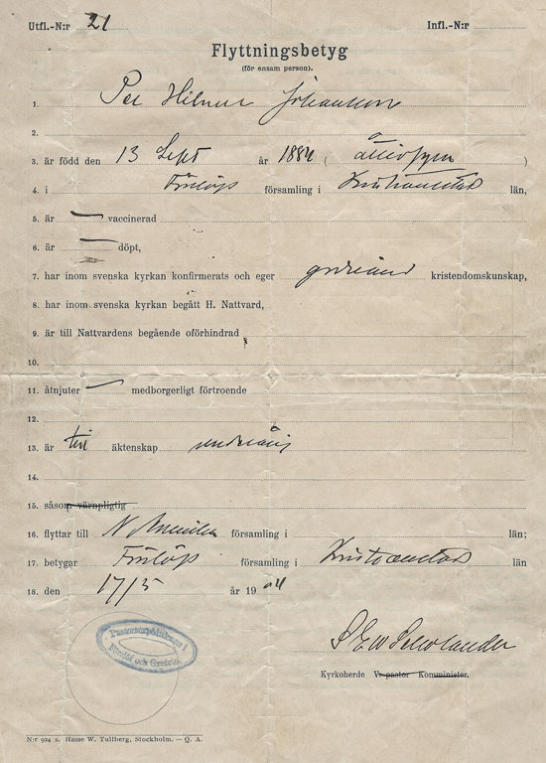 Utfl.-N:r 21 Infl.-N:r
Flyttningsbetyg
(för ensam person).
1. Per Hilmer Johansson
2.
3. är född den 13 Sept år 1884 ( )
4. i Färlöfs församling i Kristianstad län,
5. är — vaccinerad
6. är — döpt,
7. har inom svenska kyrkan konfirmerats och eger godkänd kristendomskunskap,
8. har inom svenska kyrkan begått H. Nattvard,
9. är till Nattvardens begående oförhindrad
10.
11. åtnjuter — medborgerligt förtroende
12.
13. är till äktenskap
14.
15. såsom värnpligtig
16. flyttar till N. Amerika församling i län;
17. betygar Färlöfs församling i Kristianstad län
18. den 17/5 år 1904
Pastorsexpeditionen i
Färlöf och
Kyrkoherde V. pastor Komminister.
N:r 924 z. Hasse W. Tullberg, Stockholm. — Q. A.